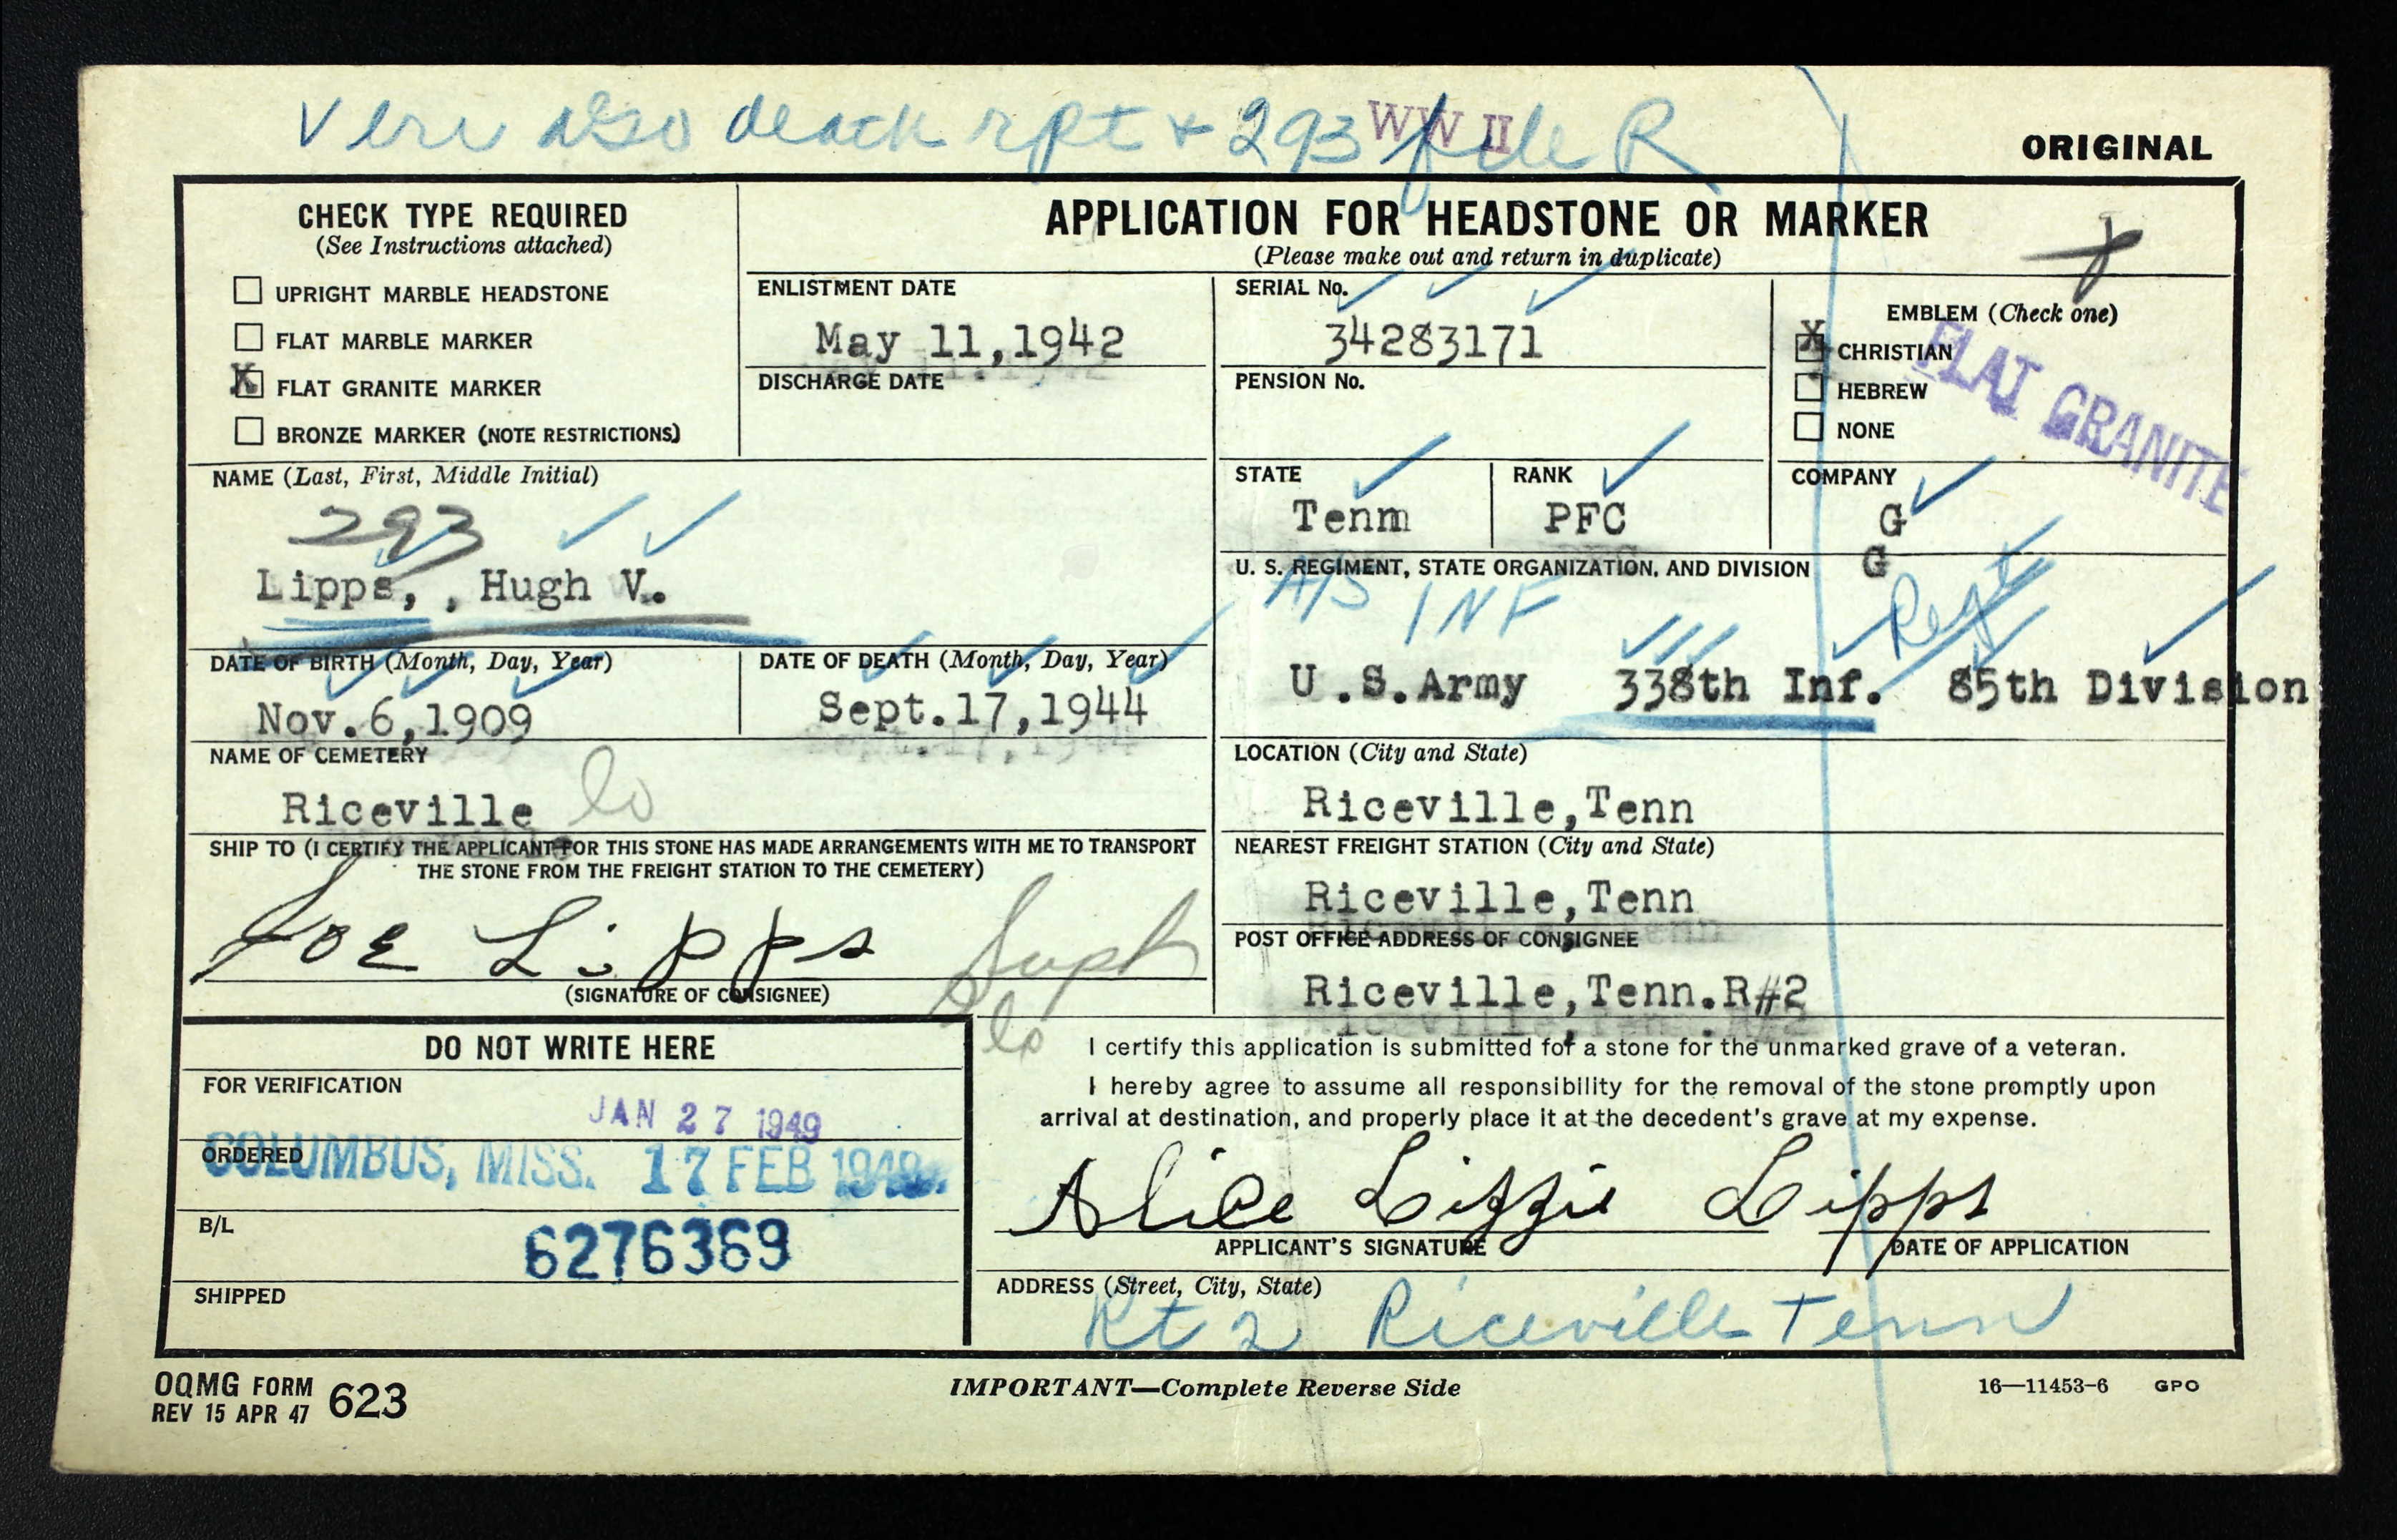 Veri also death rpt + 293 file R
WW II
ORIGINAL
CHECK TYPE REQUIRED
(See Instructions attached)
UPRIGHT MARBLE HEADSTONE
FLAT MARBLE MARKER
X FLAT GRANITE MARKER
BRONZE MARKER (NOTE RESTRICTIONS)
APPLICATION FOR HEADSTONE OR MARKER
(Please make out and return in duplicate)
ENLISTMENT DATE
May 11,1942
DISCHARGE DATE
SERIAL No.
34283171
PENSION No.
EMBLEM (Check one)
X CHRISTIAN
HEBREW
NONE
FLAT GRANITE
NAME (Last, First, Middle Initial)
293
Lipps, , Hugh V.
STATE
Tenm
RANK
PFC
COMPANY
G
G
U. S. REGIMENT, STATE ORGANIZATION, AND DIVISION
A/S INF Regt
U.S.Army 338th Inf. 85th Division
DATE OF BIRTH (Month, Day, Year)
Nov.6,1909
DATE OF DEATH (Month, Day, Year)
Sept.17,1944
NAME OF CEMETERY
Riceville
LOCATION (City and State)
Riceville,Tenn
SHIP TO (I CERTIFY THE APPLICANT FOR THIS STONE HAS MADE ARRANGEMENTS WITH ME TO TRANSPORT
THE STONE FROM THE FREIGHT STATION TO THE CEMETERY)
Joe Lipps
(SIGNATURE OF CONSIGNEE)
NEAREST FREIGHT STATION (City and State)
Riceville,Tenn
POST OFFICE ADDRESS OF CONSIGNEE
Riceville,Tenn.R#2
DO NOT WRITE HERE
FOR VERIFICATION
JAN 27 1949
ORDERED
COLUMBUS, MISS. 17 FEB 1949.
B/L
6276369
SHIPPED
I certify this application is submitted for a stone for the unmarked grave of a veteran.
I hereby agree to assume all responsibility for the removal of the stone promptly upon
arrival at destination, and properly place it at the decedent's grave at my expense.
Alice Lizzie Lipps
APPLICANT'S SIGNATURE
DATE OF APPLICATION
ADDRESS (Street, City, State)
Rt 2 Riceville Tenn
OQMG FORM 623
REV 15 APR 47
IMPORTANT—Complete Reverse Side
16—11453-6 GPO